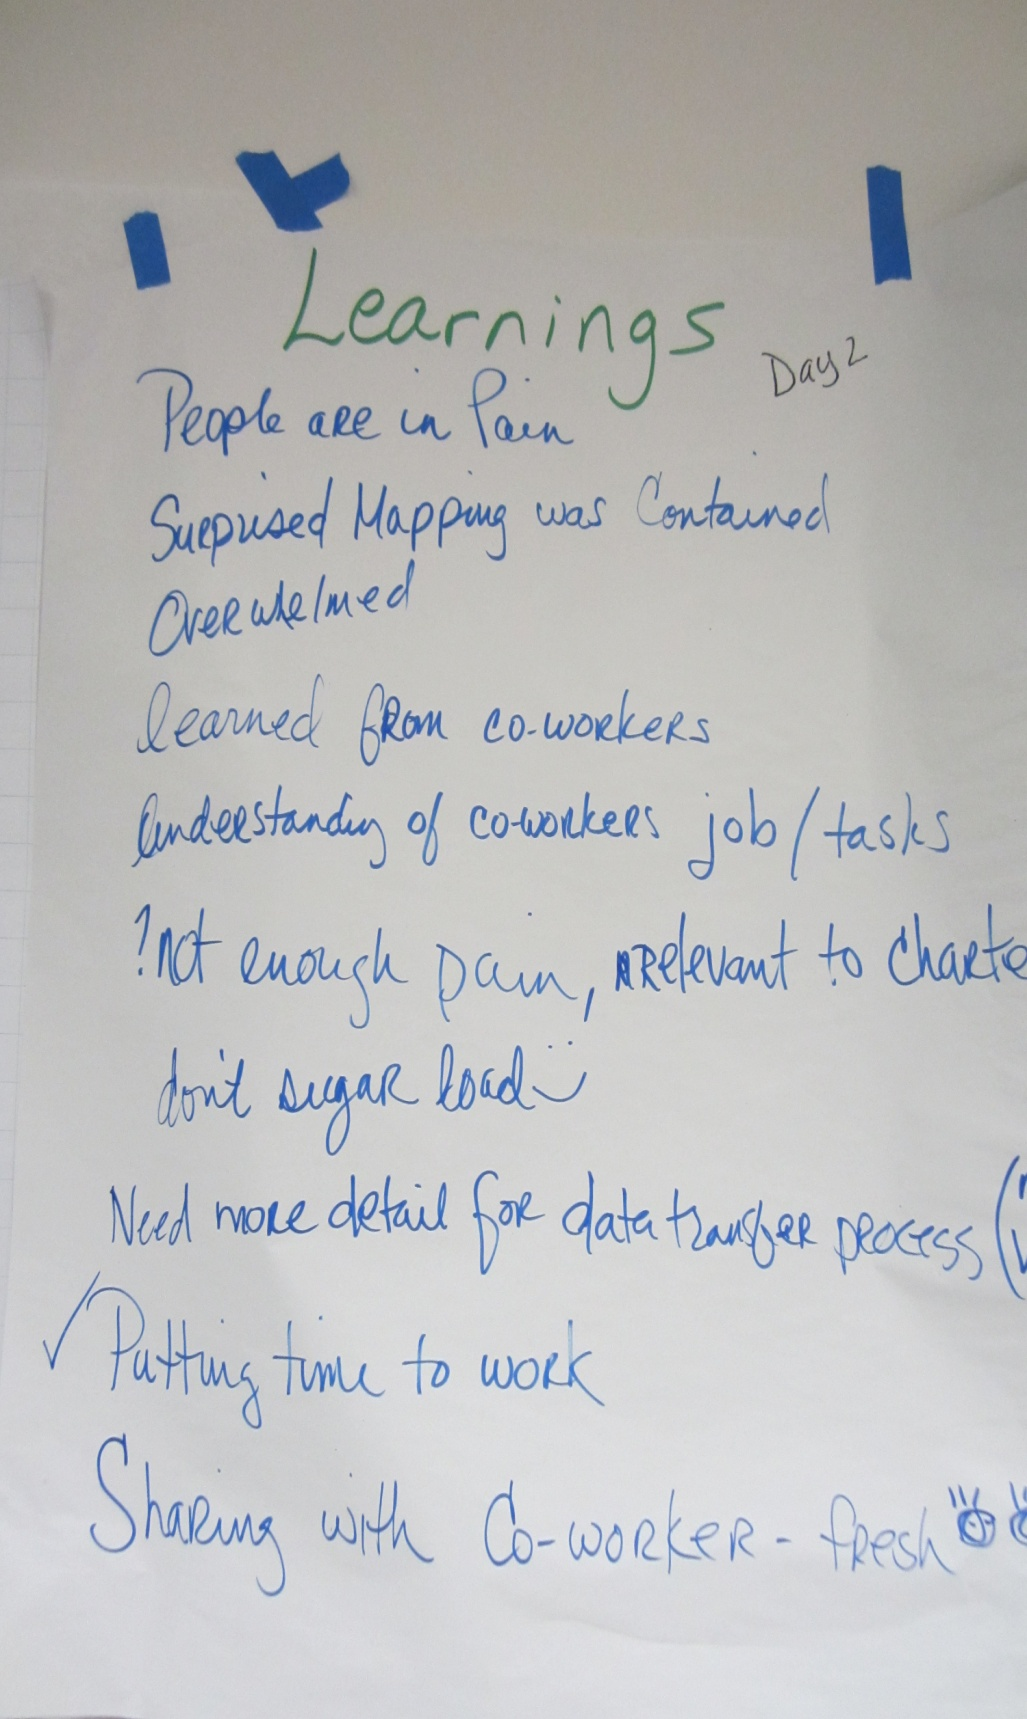 Learnings
Day 2
People are in Pain
Surprised Mapping was Contained
Overwhelmed
learned from co-workers
Understanding of co-workers job/tasks
? not enough pain, relevant to Charte
don't sugar load
Need more detail for data transfer process (
✓ Putting time to work
Sharing with Co-worker - fresh